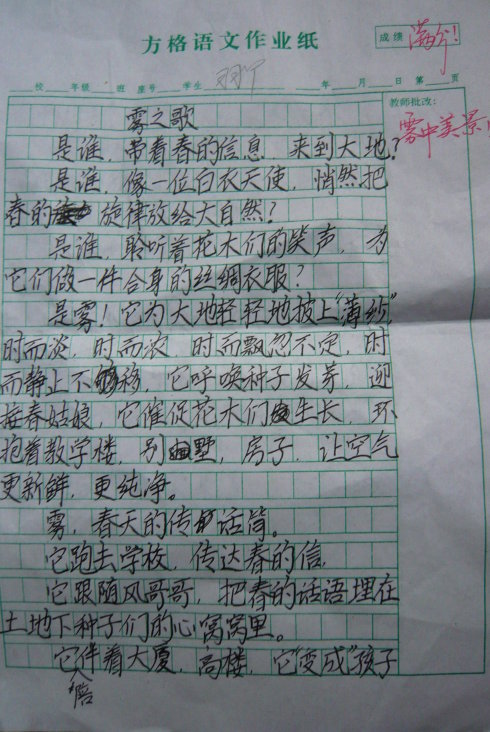 方格语文作业纸
成绩 满分！
校 年级 班 座号 学生 年 月 日 第 页
教师批改：
雾中美景
雾之歌
是谁，带着春的信息，来到大地？
是谁，像一位白衣天使，悄然把
春的旋律放给大自然？
是谁，聆听着花木们的笑声，为
它们做一件合身的丝绸衣服？
是雾！它为大地轻轻地披上“薄纱”，
时而淡，时而浓，时而飘忽不定，时
而静止不移，它呼唤种子发芽，迎
接春姑娘，它催促花木们生长，环
抱着教学楼，别墅，房子，让空气
更新鲜，更纯净。
雾，春天的传话筒。
它跑去学校，传达春的信，
它跟随风哥哥，把春的话语埋在
土地下种子们的心窝窝里。
它陪伴着大厦，高楼，它“变成”孩子